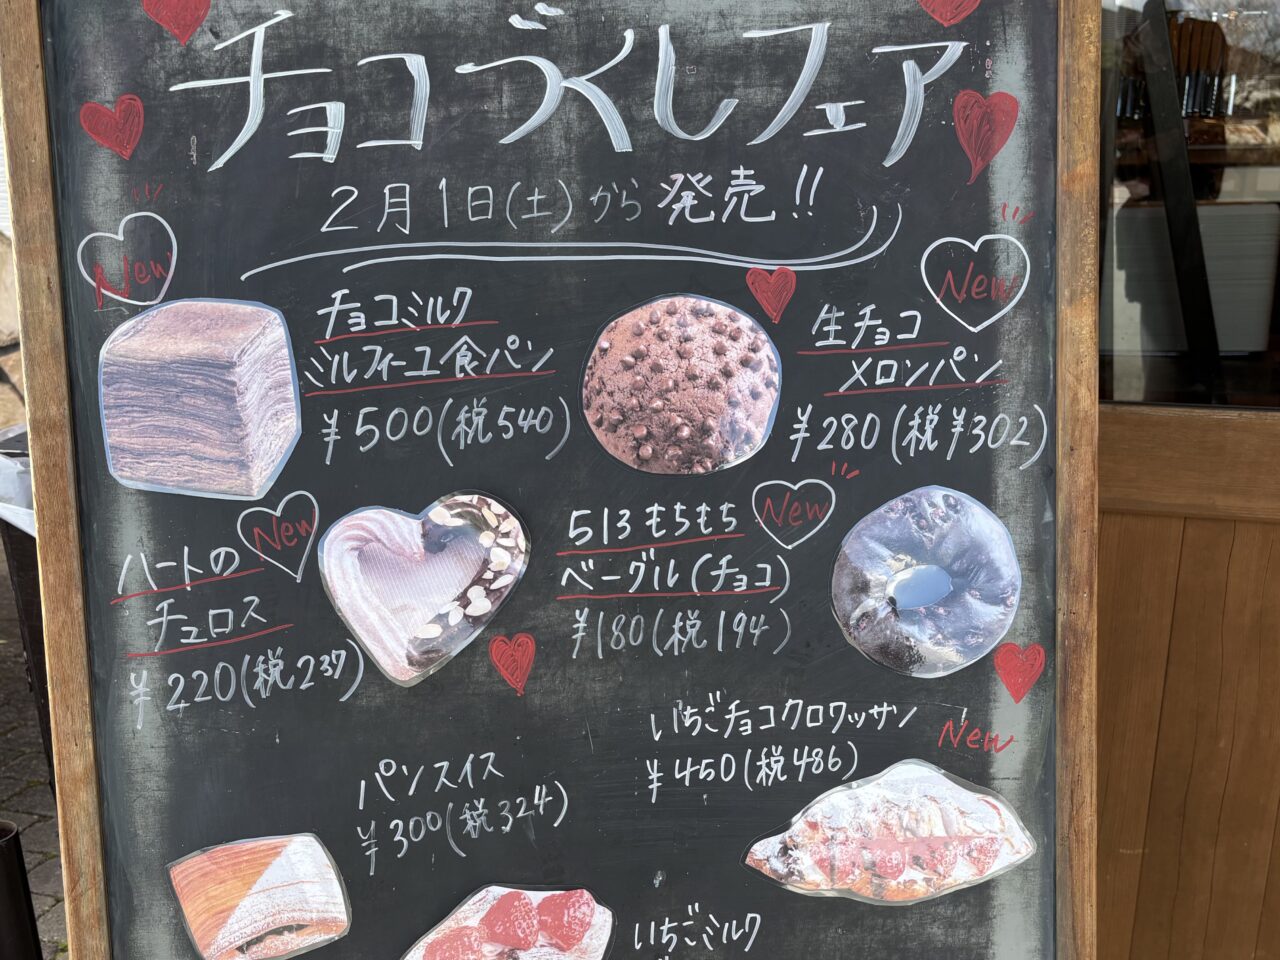 チョコづくしフェア
2月1日(土)から発売!!
New
チョコミルク
ミルフィーユ食パン
¥500(税540)
New
生チョコ
メロンパン
¥280(税¥302)
New
ハートの
チュロス
¥220(税237)
New
513もちもち
ベーグル(チョコ)
¥180(税194)
いちごチョコクロワッサン
¥450(税486)
New
パンスイス
¥300(税324)
いちごミルク